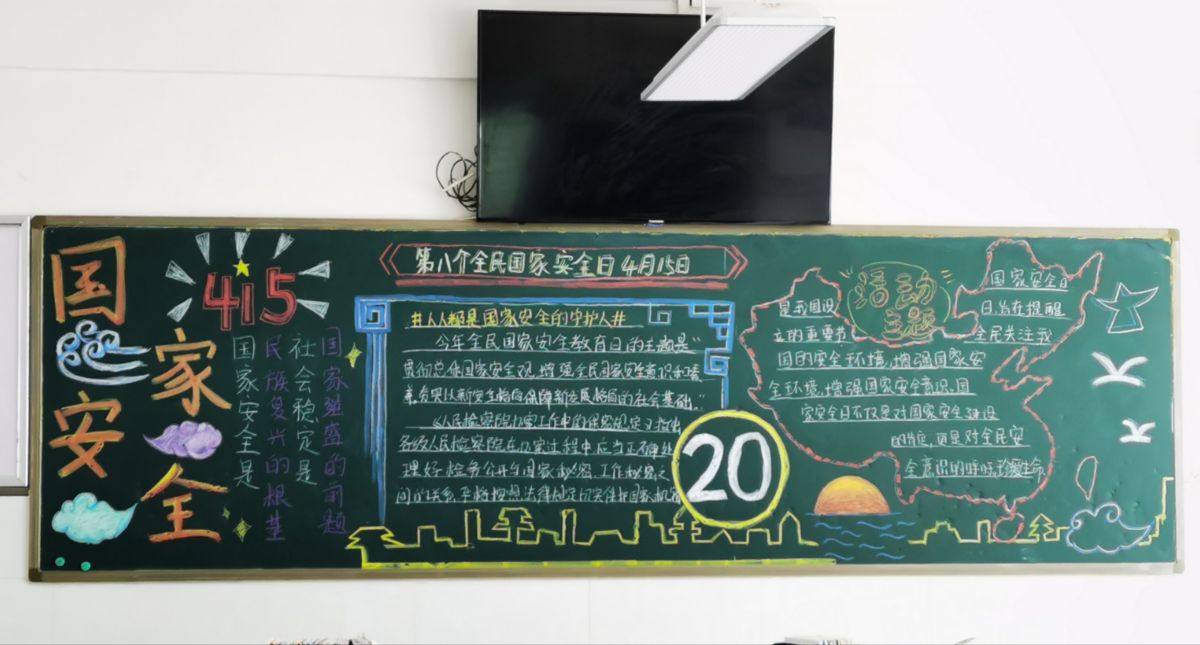 国家安全
415
国家安全是
民族复兴的根基
社会稳定是
国家强盛的前题
第八个全民国家安全日 4月15日
#人人都是国家安全的守护人#
今年全民国家安全教育日的主题是“
贯彻总体国家安全观,增强全民国家安全意识和素
养,夯实以新安全格局保障新发展格局的社会基础。”
《人民检察院办案工作中的保密规定》指出
各级人民检察院在办案过程中应当正确处
理好检务公开与国家秘密、工作秘密之
间的关系,严格按照法律规定
20
活动
主题
是我国设
立的重要节
国家安全日
日,旨在提醒
全民关注我
国的安全环境,增强国家安
全环境,增强国家安全意识。国
家安全日不仅是对国家安全建设
的 更是对全民安
全意识的呼吁,珍爱生命